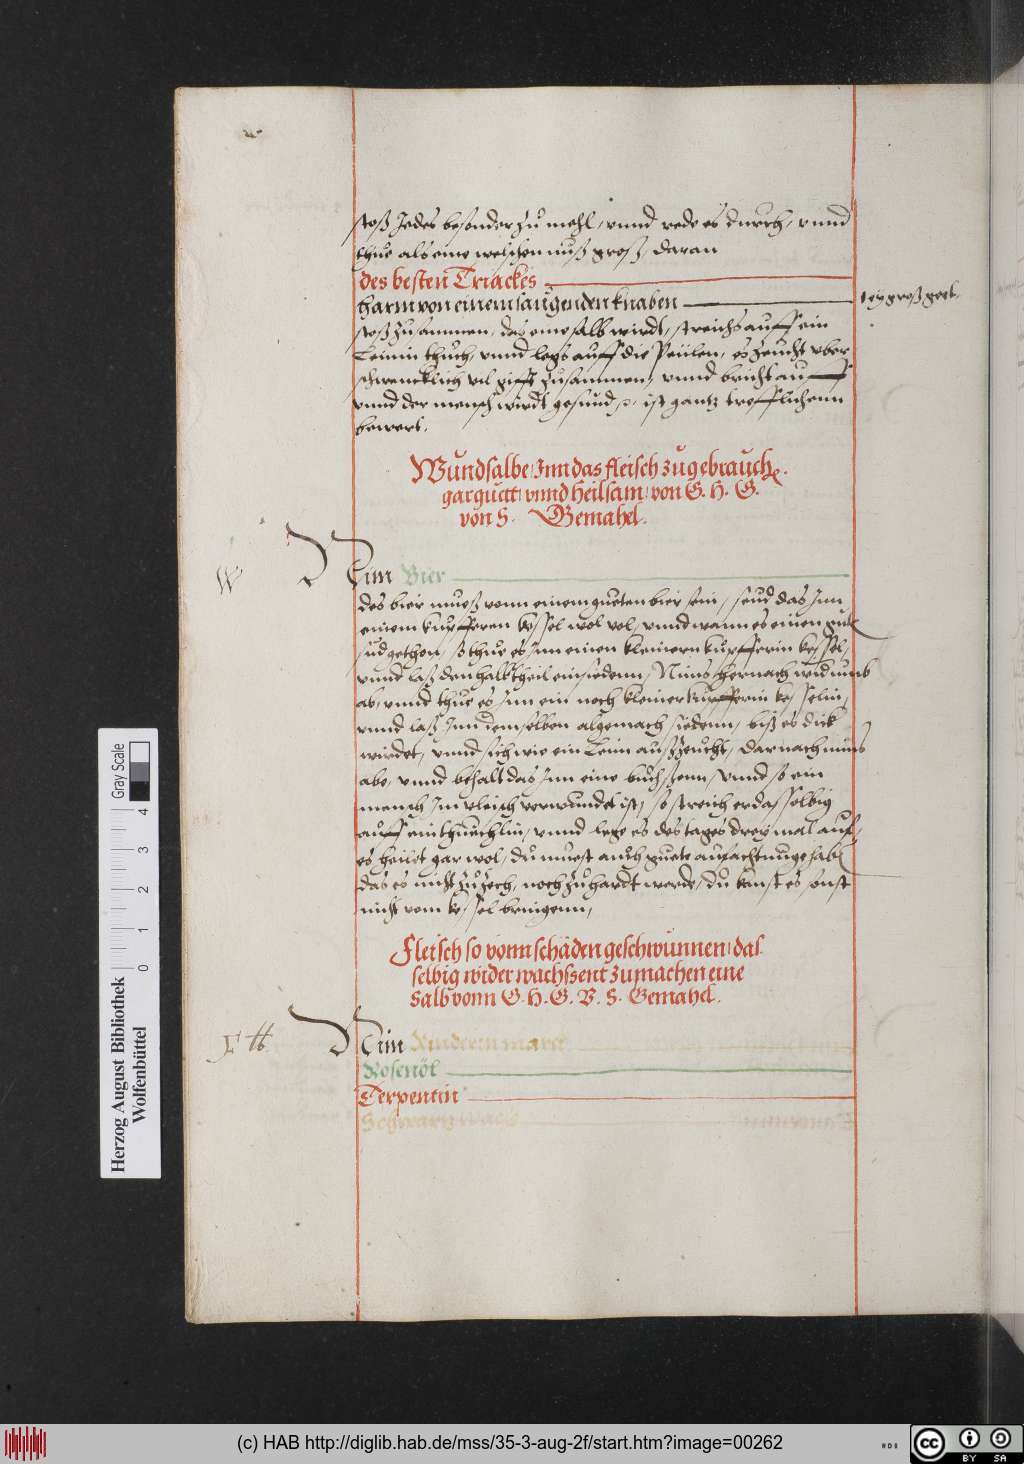 stoß Jedes besonder zů mehl, vnnd rede es durch, vnnd
thue als eine welschen nuß groß daran
des besten Triackes
harm von einem saugenden knaben 1 ey groß geel.
stoß zusammen, das eine salb wirdt, streichs auff ein
Leinin thuch, vnnd legs auff die Peülen, es zeucht vber
schwencklich vil gifft zusammen, vnnd bricht auff
vnnd der mensch wirdt gesund, ist gantz trefflichenn
bewert.
Wundsalbe Inn das fleisch zugebrauch
gar guett vnnd heilsam von G. H. G.
von S. Gemahel.
W
Nim Bier
des bier mueß vonn einem gueten bier sein, seud das Inn
einem kupfferen kessel wol vol, vnnd wann es einen gůten
sud gethon, so thue es Inn einen kleinern kupfferin kessel,
vnnd laß den halb theil einsiedenn, Nims hernach widumb
ab, vnnd thue es Inn ein noch kleiner kupfferin kesselin,
vnnd laß Inn demselben algemach siedenn, biß es dick
wirdet, vnnd sich wie ein Leim außzeucht, darnach nims
abe, vnnd behalt das Inn eine buchssenn, vnnd so ein
mensch Im vleisch verwundet ist, so streich er dasselbig
auff ein thuechlin, vnnd lege es des tages drey mal auf,
es heilet gar wol, du muest auch guete aufachtung haben
das es nicht zů zech, noch zů hardt werde, du kanst es sonst
nicht vom kessel bringenn,
Fleisch so vonn schäden geschwunnen das
selbig wider wachssent zumachen eine
Salb vonn G. H. G. V. S. Gemahel.
Nim Rinderin marck
Rosenöl
Terpentin
Schwartz wachs
Herzog August Bibliothek
Wolfenbüttel
0 1 2 3 4
Gray Scale
(c) HAB http://diglib.hab.de/mss/35-3-aug-2f/start.htm?image=00262
cc BY SA